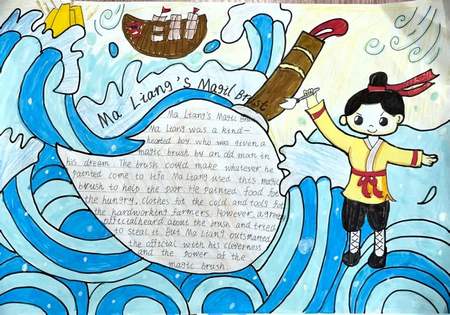 Ma Liang's Magil Brust
Ma Liang's Magil Br
Ma Liang was a kind-
hearted boy who was given a
magic brush by an old man in
his dream. The brush could make whatever he
painted come to life. Ma Liang used this magic
brush to help the poor. He painted food for
the hungry, clothes for the cold, and tools for
the hardworking farmers. However, a greedy
official heard about the brush and tried
to steal it. But Ma Liang outsmarted
the official with his cleverness
and the power of the
magic brush